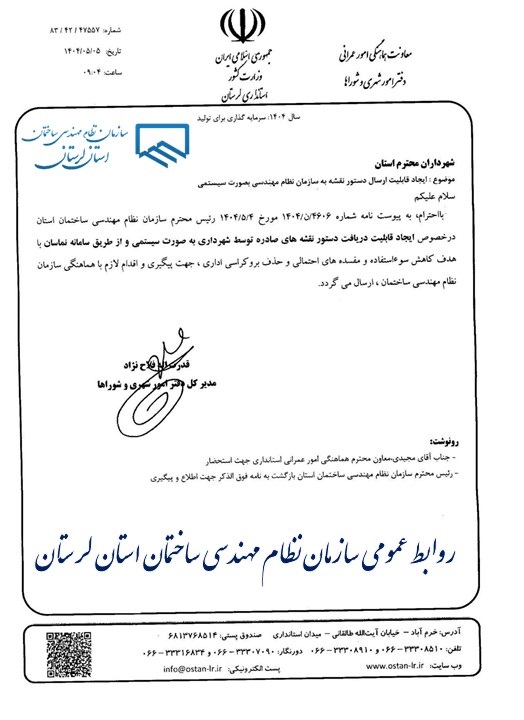 شماره: ۸۳ / ۴۲ / ۴۷۵۵۷
تاریخ: ۱۴۰۴/۰۵/۰۵
ساعت: ۰۹:۰۴
جمهوری اسلامی ایران
وزارت کشور
استانداری لرستان
معاونت هماهنگی امور عمرانی
دفتر امور شهری و شوراها
سال ۱۴۰۴: سرمایه گذاری برای تولید
سازمان نظام مهندسی ساختمان
استان لرستان
شهرداران محترم استان
موضوع : ایجاد قابلیت ارسال دستور نقشه به سازمان نظام مهندسی بصورت سیستمی
سلام علیکم
بااحترام، به پیوست نامه شماره ۱۴۰۴/ن/۴۶۰۶ مورخ ۱۴۰۴/۵/۴ رئیس محترم سازمان نظام مهندسی ساختمان استان
درخصوص ایجاد قابلیت دریافت دستور نقشه های صادره توسط شهرداری به صورت سیستمی و از طریق سامانه نماسان با
هدف کاهش سوءاستفاده و مفسده های احتمالی و حذف بروکراسی اداری ، جهت پیگیری و اقدام لازم با هماهنگی سازمان
نظام مهندسی ساختمان ، ارسال می گردد.
قدرت اله فلاح نژاد
مدیر کل دفتر امور شهری و شوراها
رونوشت:
- جناب آقای مجیدی،معاون محترم هماهنگی امور عمرانی استانداری جهت استحضار
- رئیس محترم سازمان نظام مهندسی ساختمان استان بازگشت به نامه فوق الذکر جهت اطلاع و پیگیری
روابط عمومی سازمان نظام مهندسی ساختمان استان لرستان
آدرس: خرم آباد - خیابان آیت‌الله طالقانی - میدان استانداری صندوق پستی: ۶۸۱۳۷۶۸۵۱۴
تلفن: ۳۳۳۰۸۵۱۰-۰۶۶ و ۳۳۳۰۸۹۱۰-۰۶۶ دورنگار: ۳۳۳۰۷۰۹۰-۰۶۶ و ۳۳۳۱۶۸۳۴-۰۶۶
وب سایت: www.ostan-lr.ir پست الکترونیکی: info@ostan-lr.ir